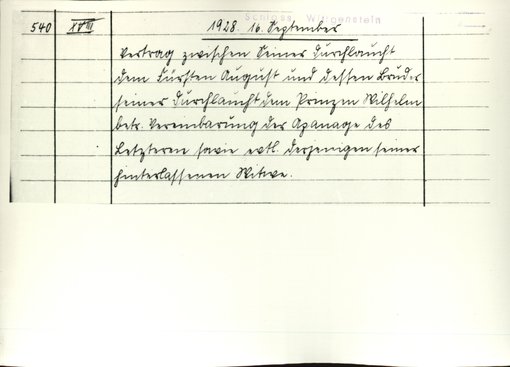 Schloss Wittgenstein
540 XVIII 1928. 16. September
Vertrag zwischen Seiner Durchlaucht
dem Fürsten August und dessen Bruder
seiner Durchlaucht dem Prinzen Wilhelm
betr. Vereinbarung der Apanage des
Letzteren sowie evtl. derjenigen seiner
hinterlassenen Witwe.